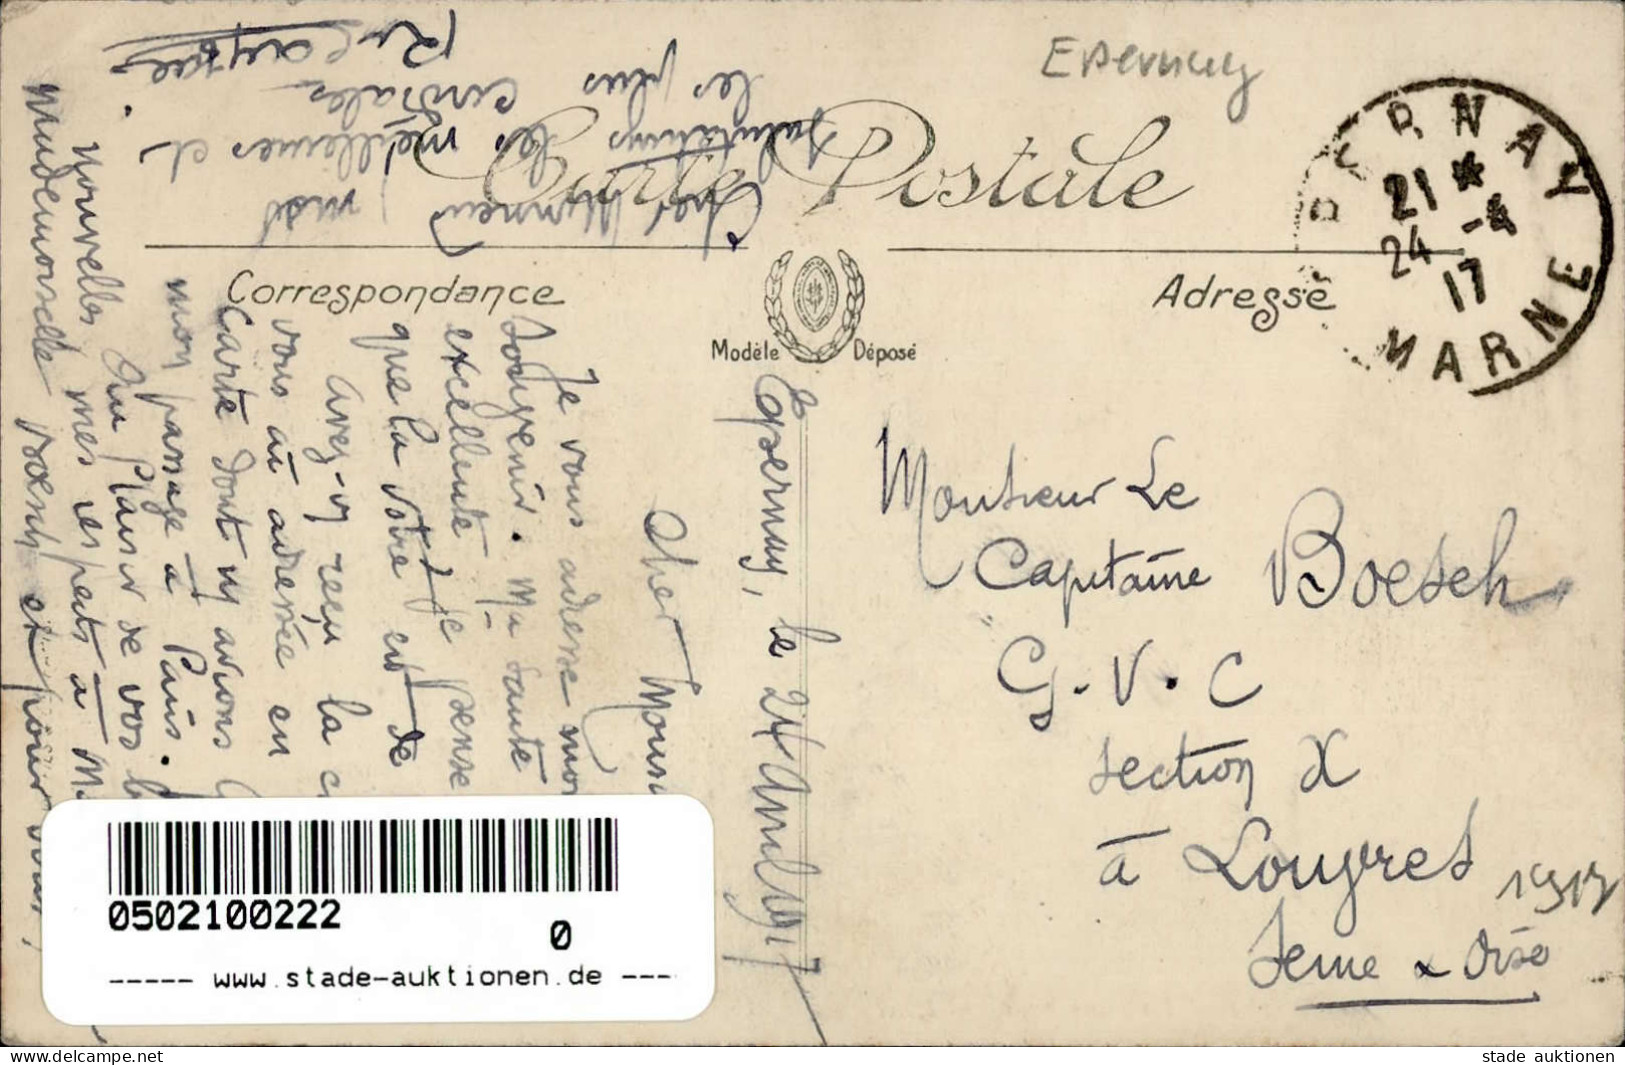 Epernay
Carte Postale
EPERNAY
21 *
24 -4
17
MARNE
Correspondance
Adresse
Modèle Déposé
Epernay, le 24 Avril 1917
Cher Monsi
Je vous adresse mon
souvenir. Ma santé
excellente et je pense
que la vôtre est de
avez-vs reçu la c
vous ai adressée en
carte dont ns avions
mon passage à Paris.
Au plaisir de vos
nouvelles, mes respects à M
Mademoiselle Boesch et pour vous,
Cher Monsieur, mes
salutations les meilleures et
les plus cordiales
Monsieur Le
Capitaine Boesch
G. V. C
section X
à Louvres
Seine & Oise
1917
0502100222
0
----- www.stade-auktionen.de ---
www.delcampe.net
stade auktionen